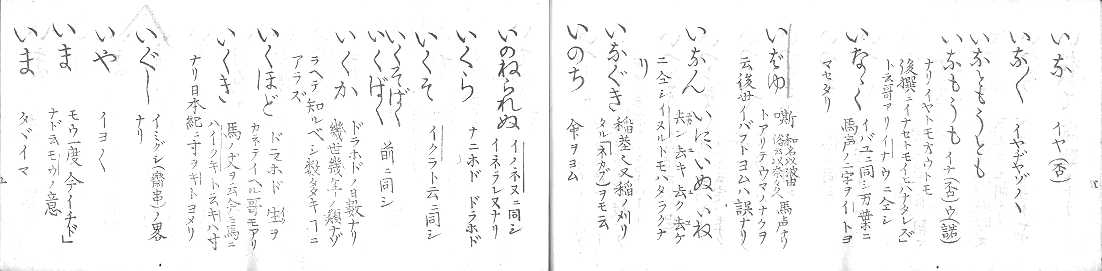 いな
イヤ(否)
いな〳〵
イヤデヤゾ〳〵
いなともうとも
いなもうも
イナ(否)ウ(諾)
ナリイヤトモオウトモ
後撰ニナセトモイハヽナセトモイハズ
ト云哥アリイナウニ全シ
いなゝく
イバユニ同シ万葉ニ
馬声ノ二字ヲイトヨ
マセタリ
いばゆ
嘶
馬声ナリ
トアリテウマノナクヲ
云後世イバフトヨムハ誤ナリ
いなん
いにいぬ、いね
去ン去キ去ク去ケ
ニ全シイヌルトモハタラクナ
リ
いなぐき
稲茎又稲ノ刈リ
タル(ネカブ)ヲモ云
いのち
命ヲヨム
いのねられぬ
イノネヌニ同シ
イネラレヌナリ
いくら
ナニホドドラホド
いくそ
イクラト云ニ同シ
いくそばく
いくばく
前ニ同シ
いくか
ドラホドノ日数ナリ
幾世幾年ノ類ナゾ
ラヘテ知ルベシ数多キヿニ
アラズ
いくほど
ドラホド
生ヲ
カネテイヘル哥モアリ
いくき
馬ノ丈ヲ云今ニ馬ニ
ハイクキト云キハ寸
ナリ日本紀ニ寸ヲキトヨメリ
いぐし
イミグシ(齋串)ノ畧
ナリ
いや
イヨ〳〵
いま
モウ一度今イチド
ナド云モウノ意
いま
タヾイマ